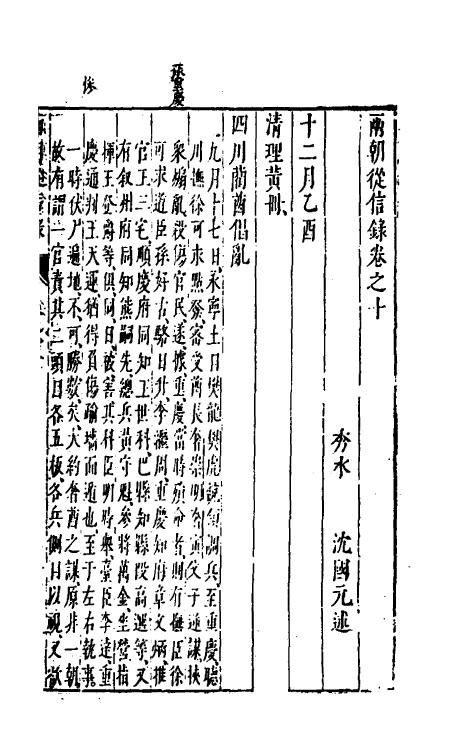 兩朝從信錄卷之十
秀水　沈國元　述
十二月乙酉
清理黃冊
四川藺酋倡亂
九月十七日永寧土目樊龍樊虎說領調兵至重慶聽
川撫徐可求點發審受酋長奢崇明奢寅父子逆謀挾
衆煽亂殺傷官民遂據重慶當時殞命者則有撫臣徐
可求道臣孫好古駱日升李繼周重慶知府章文炳推
官王三宅順慶府同知王世科巴縣知縣段高選等又
有叙州府同知熊嗣先總兵黃守魁參將萬金坐營指
揮王登爵等俱同日被害其科臣明時舉臺臣李達重
慶通判王天運猶得負傷踰墻而遁也至于左右執事
一時伏尸遍地不可勝數矣大約奢酋之謀原非一朝
故有謂一官責其二頭目各五板各兵側目以視又欲
孫重慶